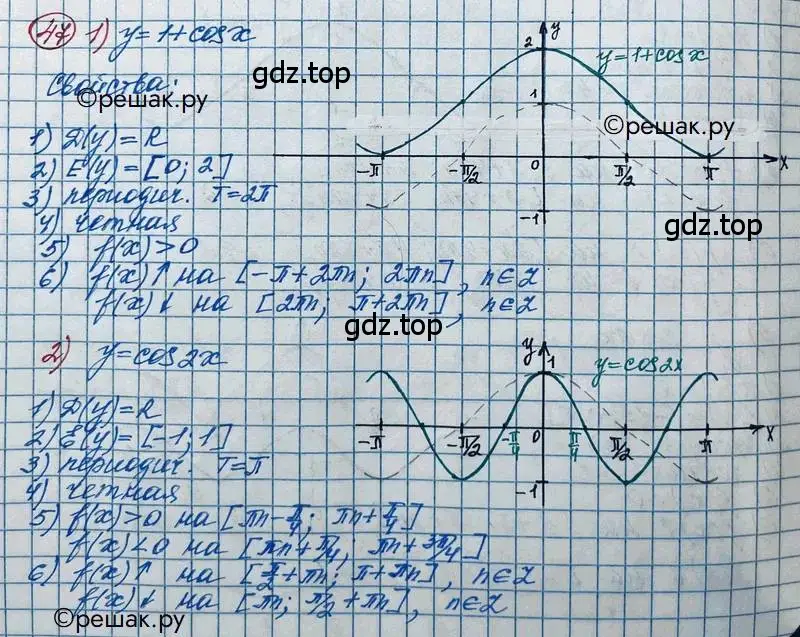 47 1) y = 1 + cos x
Свойства:
1) D(y) = R
2) E(y) = [0; 2]
3) периодич. T = 2π
4) четная
5) f(x) > 0
6) f(x) ↑ на [-π + 2πn; 2πn], n ∈ Z
f(x) ↓ на [2πn; π + 2πn], n ∈ Z
y
2
y = 1 + cos x
1
-π -π/2 0 π/2 π x
-1
2) y = cos 2x
1) D(y) = R
2) E(y) = [-1; 1]
3) периодич. T = π
4) четная
5) f(x) > 0 на [πn - π/4; πn + π/4]
f(x) < 0 на [πn + π/4; πn + 3π/4]
6) f(x) ↑ на [π/2 + πn; π + πn], n ∈ Z
f(x) ↓ на [πn; π/2 + πn], n ∈ Z
y 1
y = cos 2x
-π -π/2 -π/4 0 π/4 π/2 π x
-1
gdz.top
©решак.ру
©решак.ру
gdz.top
gdz.top
©решак.ру